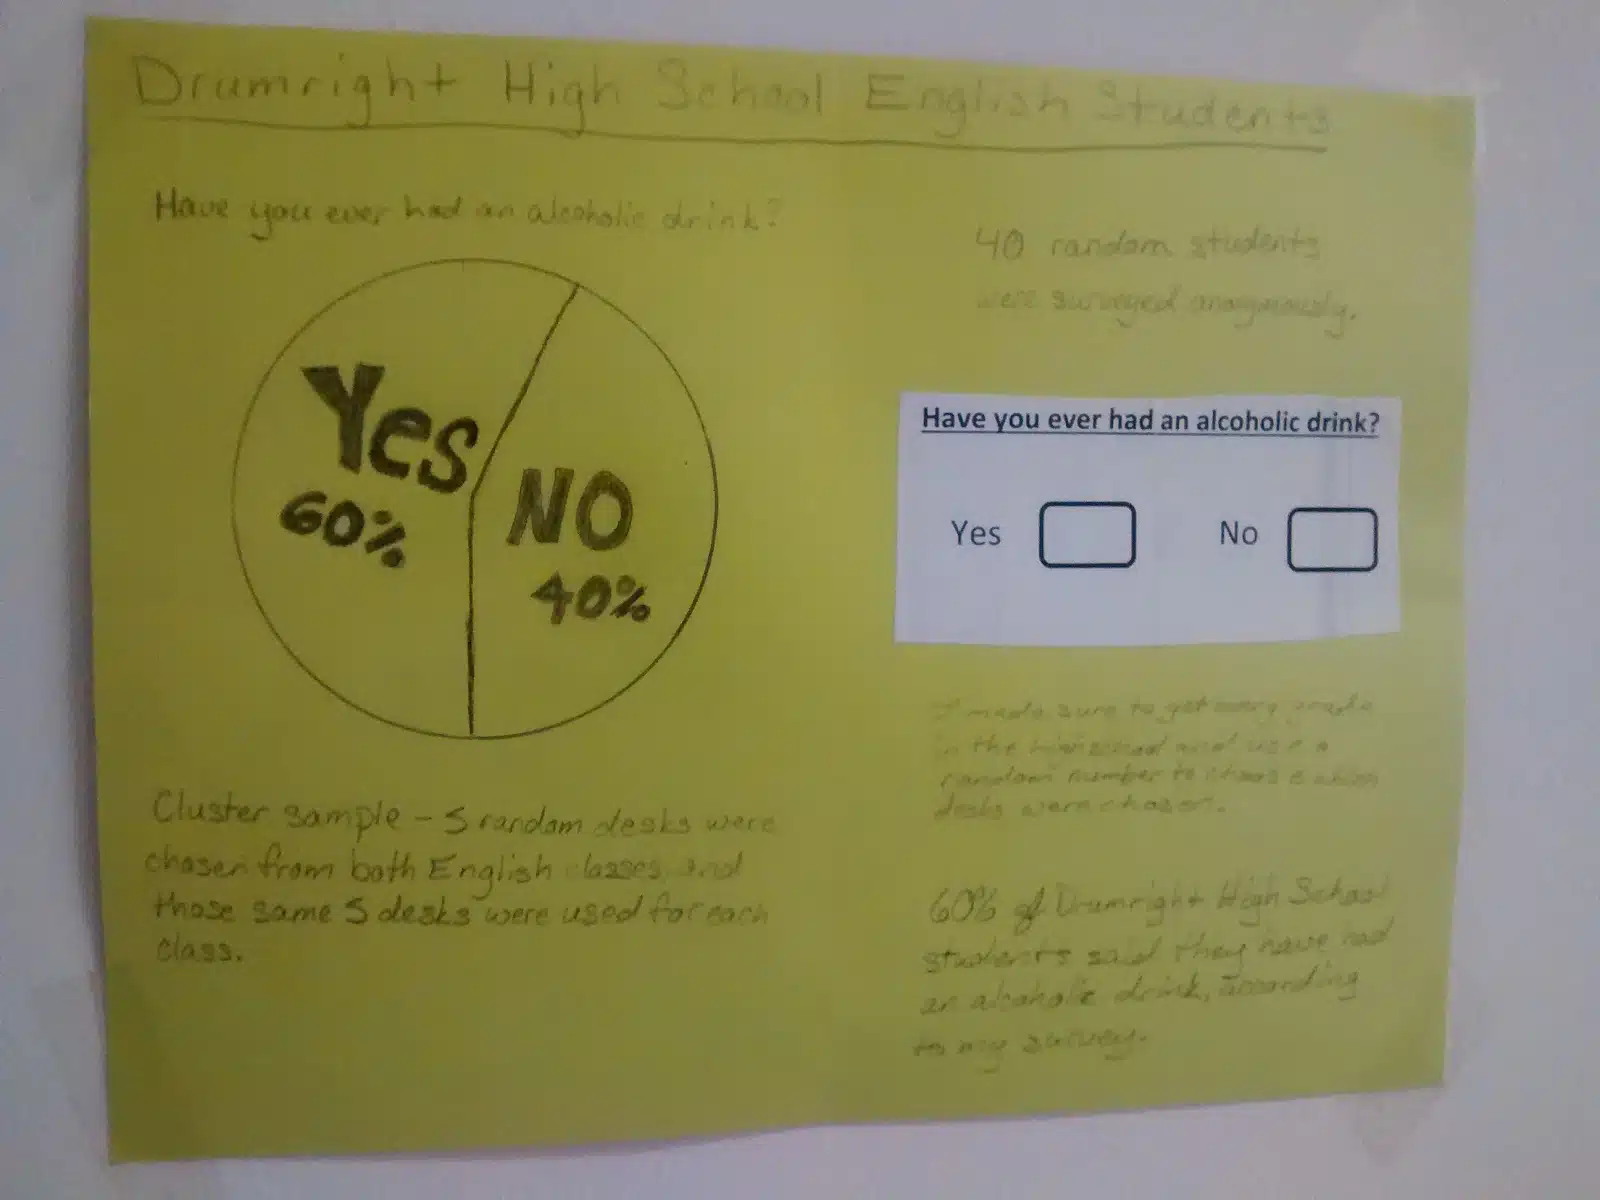 Drumright High School English Students
Have you ever had an alcoholic drink?
Yes
60%
NO
40%
Cluster sample - 5 random desks were
chosen from both English classes, and
those same 5 desks were used for each
class.
40 random students
were surveyed anonymously.
Have you ever had an alcoholic drink?
Yes
No
I made sure to get every grade
in the high school and use a
random number to choose which
desks were chosen.
60% of Drumright High School
students said they have had
an alcoholic drink, according
to my survey.